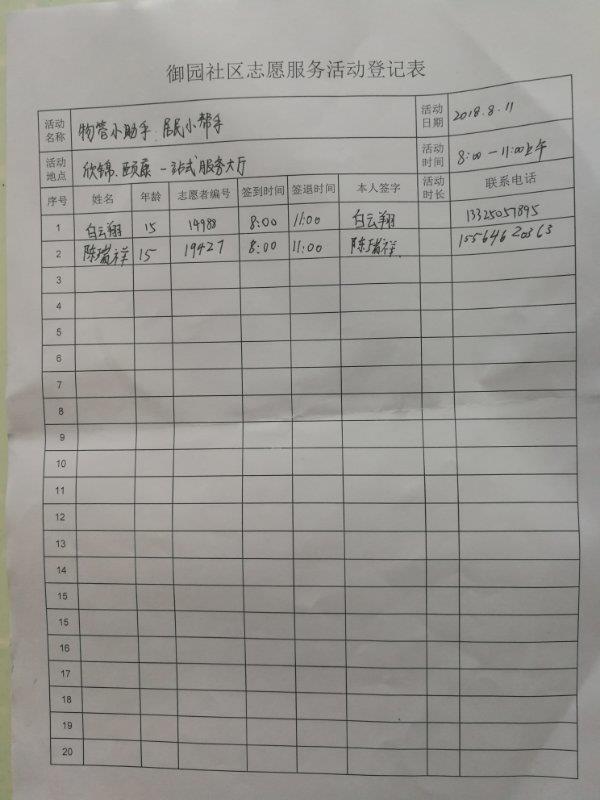 御园社区志愿服务活动登记表
活动名称 物管小助手.居民小帮手 活动日期 2018.8.11
活动地点 欣锦.颐康 一站式服务大厅 活动时间 8:00-11:00上午
序号 姓名 年龄 志愿者编号 签到时间 签退时间 本人签字 活动时长 联系电话
1 白云翔 15 14988 8:00 11:00 白云翔 13325057895
2 陈瑞祥 15 19427 8:00 11:00 陈瑞祥
3
4
5
6
7
8
9
10
11
12
13
14
15
15
16
17
18
19
20